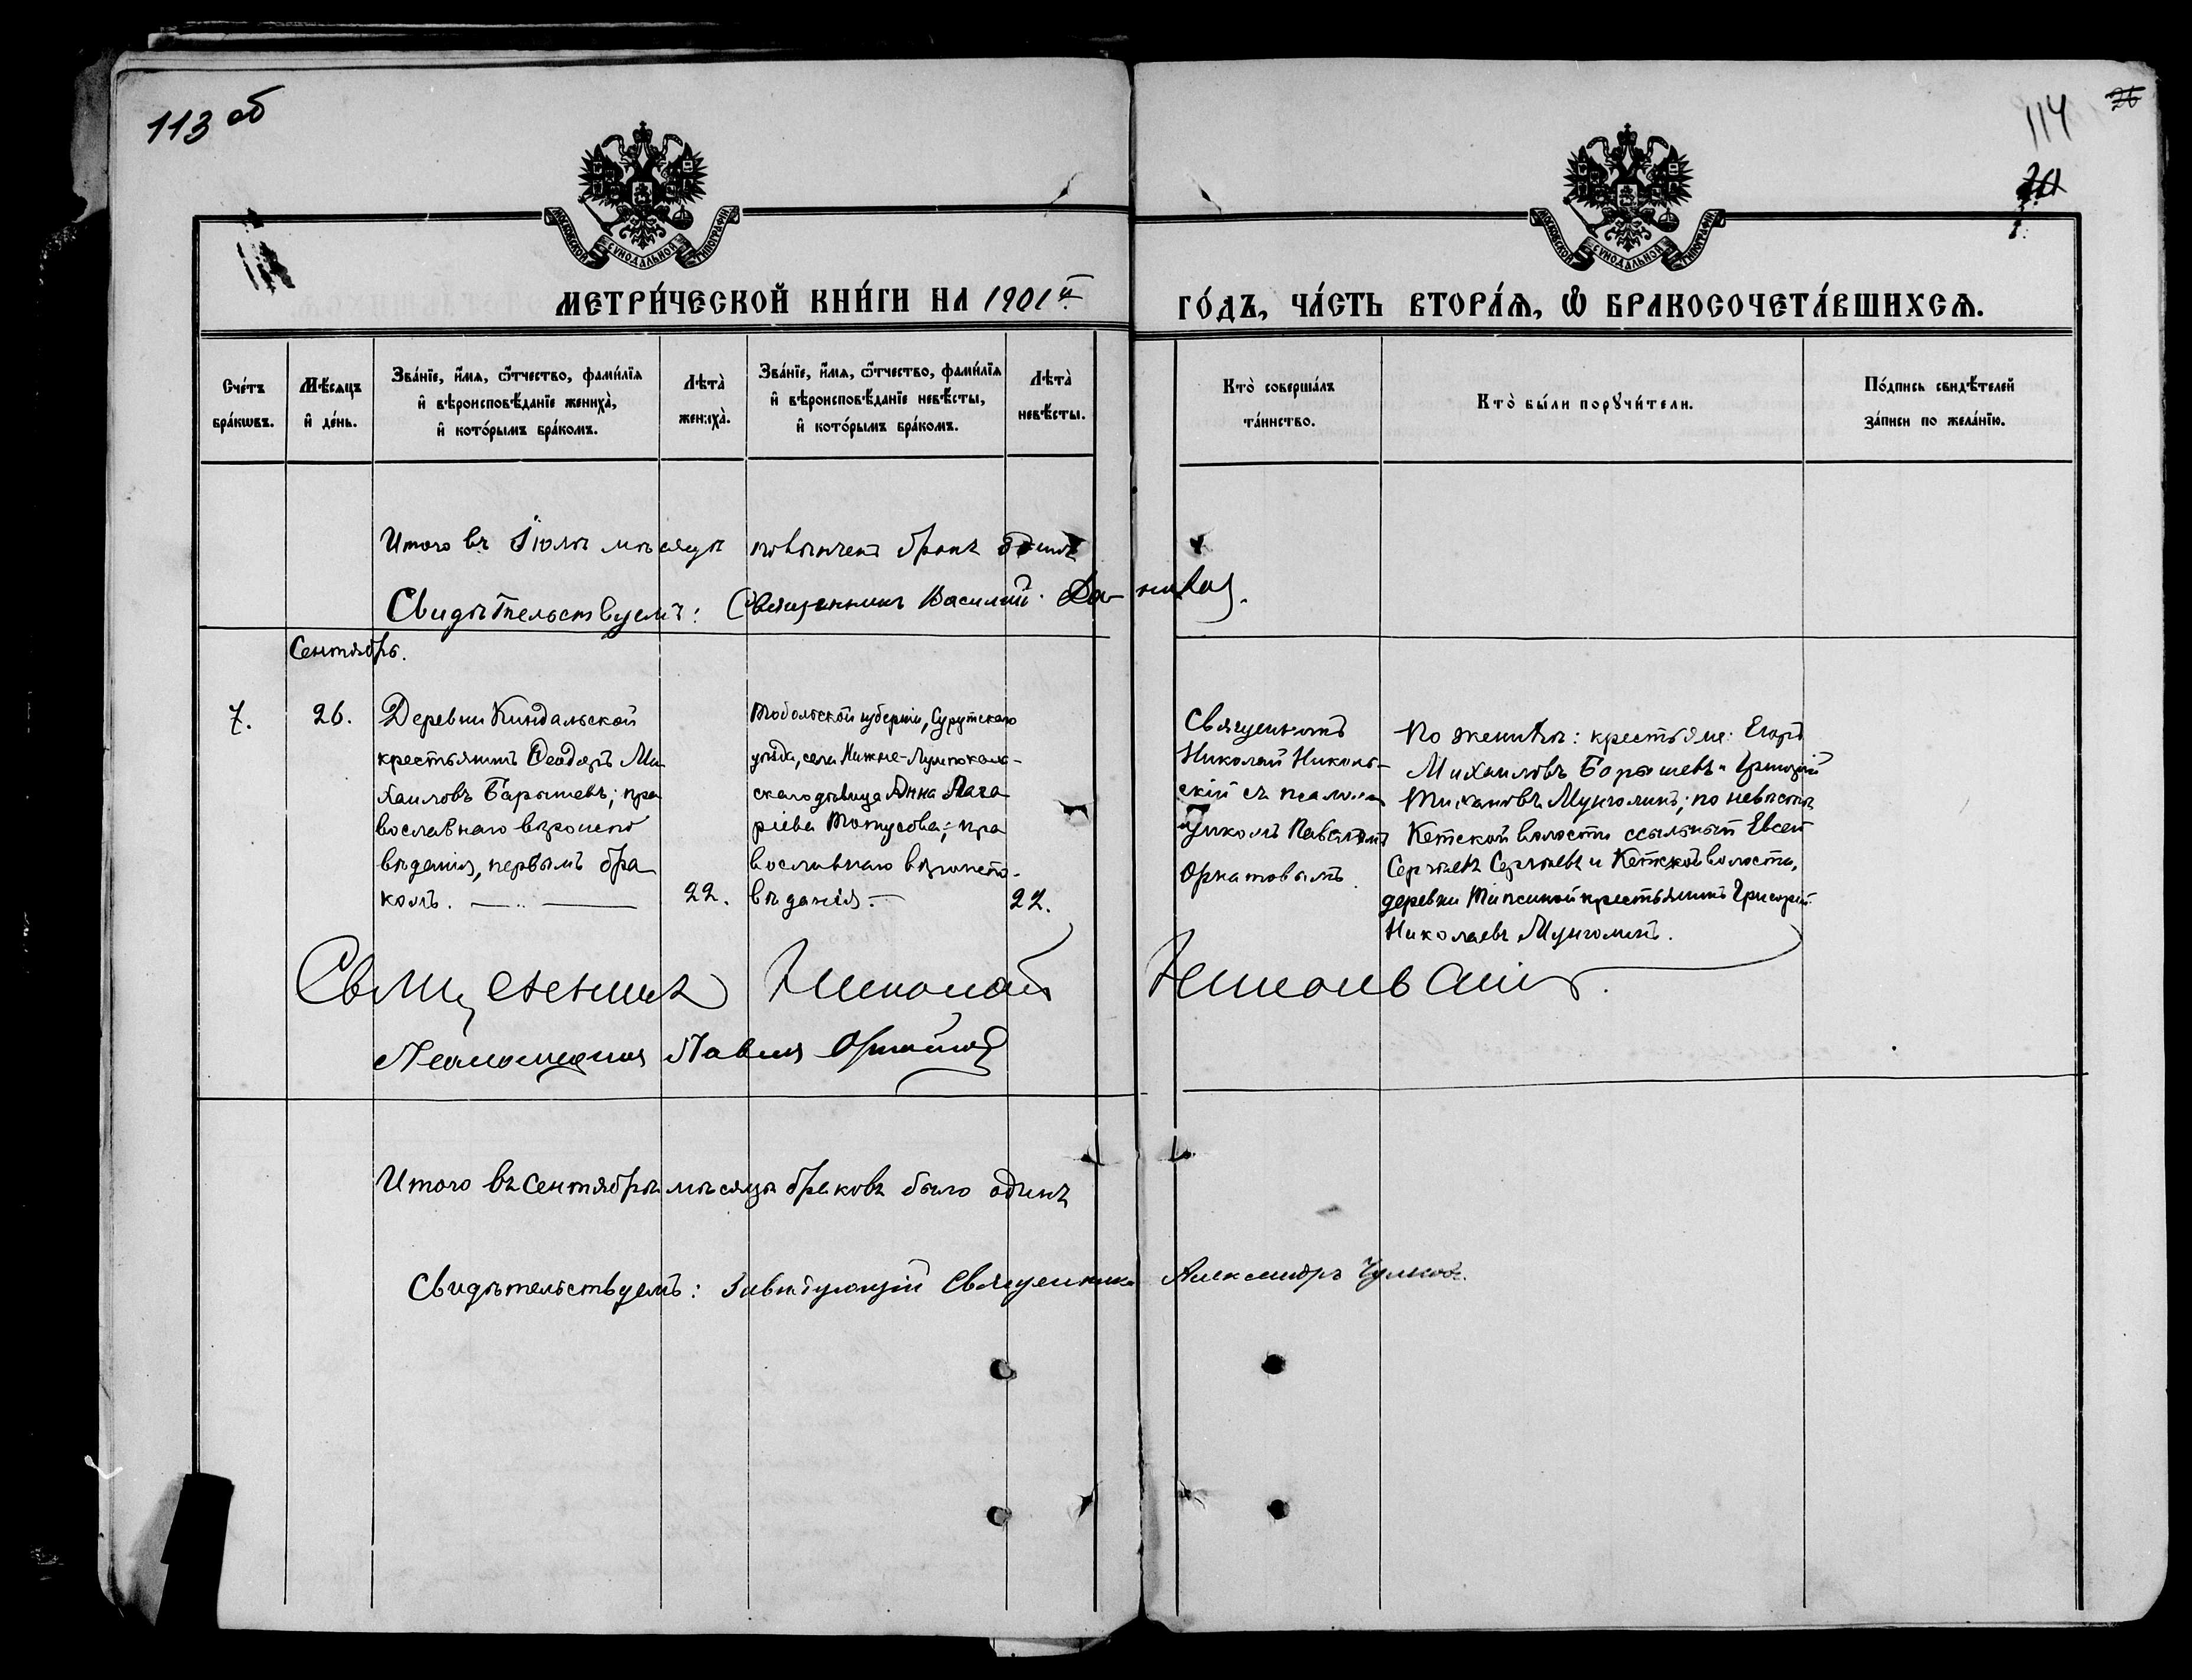 113 об
114
26
МОСКОВСКОЙ СѴНОДАЛЬНОЙ ТИПОГРАФІИ
МОСКОВСКОЙ СѴНОДАЛЬНОЙ ТИПОГРАФІИ
МЕТРИ́ЧЕСКОЙ КНИ́ГИ НА 1901й
ГО́ДЪ, ЧА́СТЬ ВТОРА́Ѧ, Ѽ БРАКОСОЧЕТА́ВШИХСѦ.
Сче́тъ
бра́кѡвъ.
Мѣ́сяцъ
и҆ де́нь.
Зва́нїе, и҆́мѧ, ѻ҆́тчество, фами́лїѧ
и҆ вѣроисповѣ́данїе жениха̀,
и҆ кото́рымъ бра́комъ.
Лѣта̀
жениха̀.
Зва́нїе, и҆́мѧ, ѻ҆́тчество, фами́лїѧ
и҆ вѣроисповѣ́данїе невѣ́сты,
и҆ кото́рымъ бра́комъ.
Лѣта̀
невѣ́сты.
Кто̀ соверша́лъ
та́инство.
Кто̀ бы́ли порꙋчи́тели.
По́дпись свидѣ́телей
за́писи по жела́нїю.
Итого въ Іюлѣ мѣсяцѣ повѣнчанъ бракъ одинъ
Свидѣтельствуемъ: Священникъ Василий
Сентябрь.
7.
26.
Деревни Киндальской
крестьянинъ Ѳеодоръ Ми
хаиловъ Барышевъ; пра
вославнаго вѣроиспо
вѣданія, первымъ бра
комъ.
22.
Тобольской губерніи, Сургутскаго
уѣзда, села Нижне-Лумпоколь-
скаго дѣвица Анна
ріева; пра
вославнаго вѣроиспо-
вѣданія.
22.
Священникъ
Николай Николь-
скій съ псалом
щикомъ Павломъ
Орнатовымъ
По женихѣ: крестьяне: Егоръ
Михаиловъ Барышевъ и Григорій
Мунголинъ; по невѣстѣ
Кетской волости ссыльный Евсей
Сергѣевъ Сергѣевъ и Кетской волости,
деревни крестьянинъ Григорій
Николаевъ Мунголинъ.
Священникъ Николай Никольскій.
Псаломщикъ Павелъ Орнатовъ
Итого въ Сентябрѣ мѣсяцѣ браковъ было одинъ
Свидѣтельствуемъ: Завѣдующій Священникъ Александръ